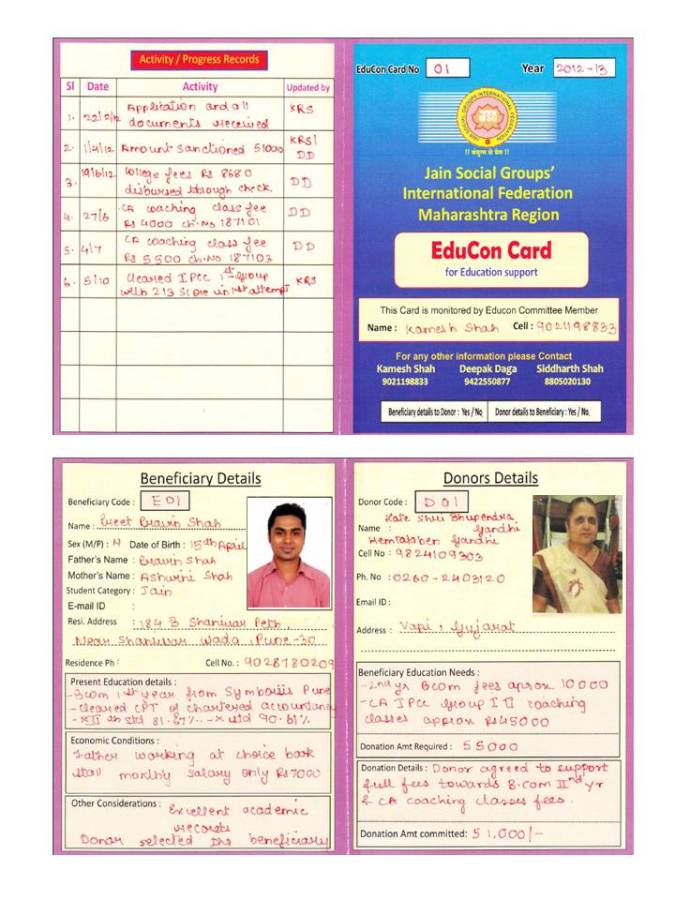 Activity / Progress Records
Sl Date Activity Updated by
1. 22/2/12 Application and all documents received KRS
2. 1/4/12 Amount sanctioned 51000 KRS/ DD
3. 19/6/12 College fees Rs 8680 disbursed through check DD
4. 27/6 CA coaching class fee Rs 4000 ch.no 187101 DD
5. 4/7 CA coaching class fee Rs 5500 ch.no 187103 DD
6. 5/10 Cleared IPCC 1st group with 213 score in 1st attempt KRS
EduCon Card No 01 Year 2012-13
JAIN SOCIAL GROUPS INTERNATIONAL FEDERATION
JSG
Jain Social Groups'
International Federation
Maharashtra Region
EduCon Card
for Education support
This Card is monitored by Educon Committee Member
Name : Kamesh Shah Cell : 9021198833
For any other information please Contact
Kamesh Shah Deepak Daga Siddharth Shah
9021198833 9422550877 8805020130
Beneficiary details to Donor : Yes / No Donor details to Beneficiary : Yes / No.
Beneficiary Details
Beneficiary Code : E01
Name : Preet Pravin Shah
Sex (M/F) : M Date of Birth : 15th April
Father's Name : Pravin Shah
Mother's Name : Ashwini Shah
Student Category : Jain
E-mail ID :
Resi. Address : 184 B Shaniwar Peth,
Near Shaniwar wada, Pune-30
Residence Ph : Cell No. : 9028780209
Present Education details :
-Bcom 1st year from Symbosis Pune
-cleared CPT of chartered accountancy
- XII th std 81.87%. -X std 90.61%
Economic Conditions :
Father working at choice book
stall monthly salary only Rs 7000
Other Considerations : Excellent academic
records
Donar selected the beneficiary
Donors Details
Donor Code : D01
Late Shri Bhupendra
Gandhi
Name : Hemlataben Gandhi
Cell No : 9824109303
Ph. No : 0260-2403120
Email ID :
Address : Vapi, Gujarat
Beneficiary Education Needs :
-2nd yr Bcom fees aprox 10000
-CA IPCC group I II coaching
classes approx Rs 45000
Donation Amt Required : 55000
Donation Details : Donor agreed to support
full fees towards B.com IInd yr
& CA coaching classes fees.
Donation Amt committed: 51,000/-